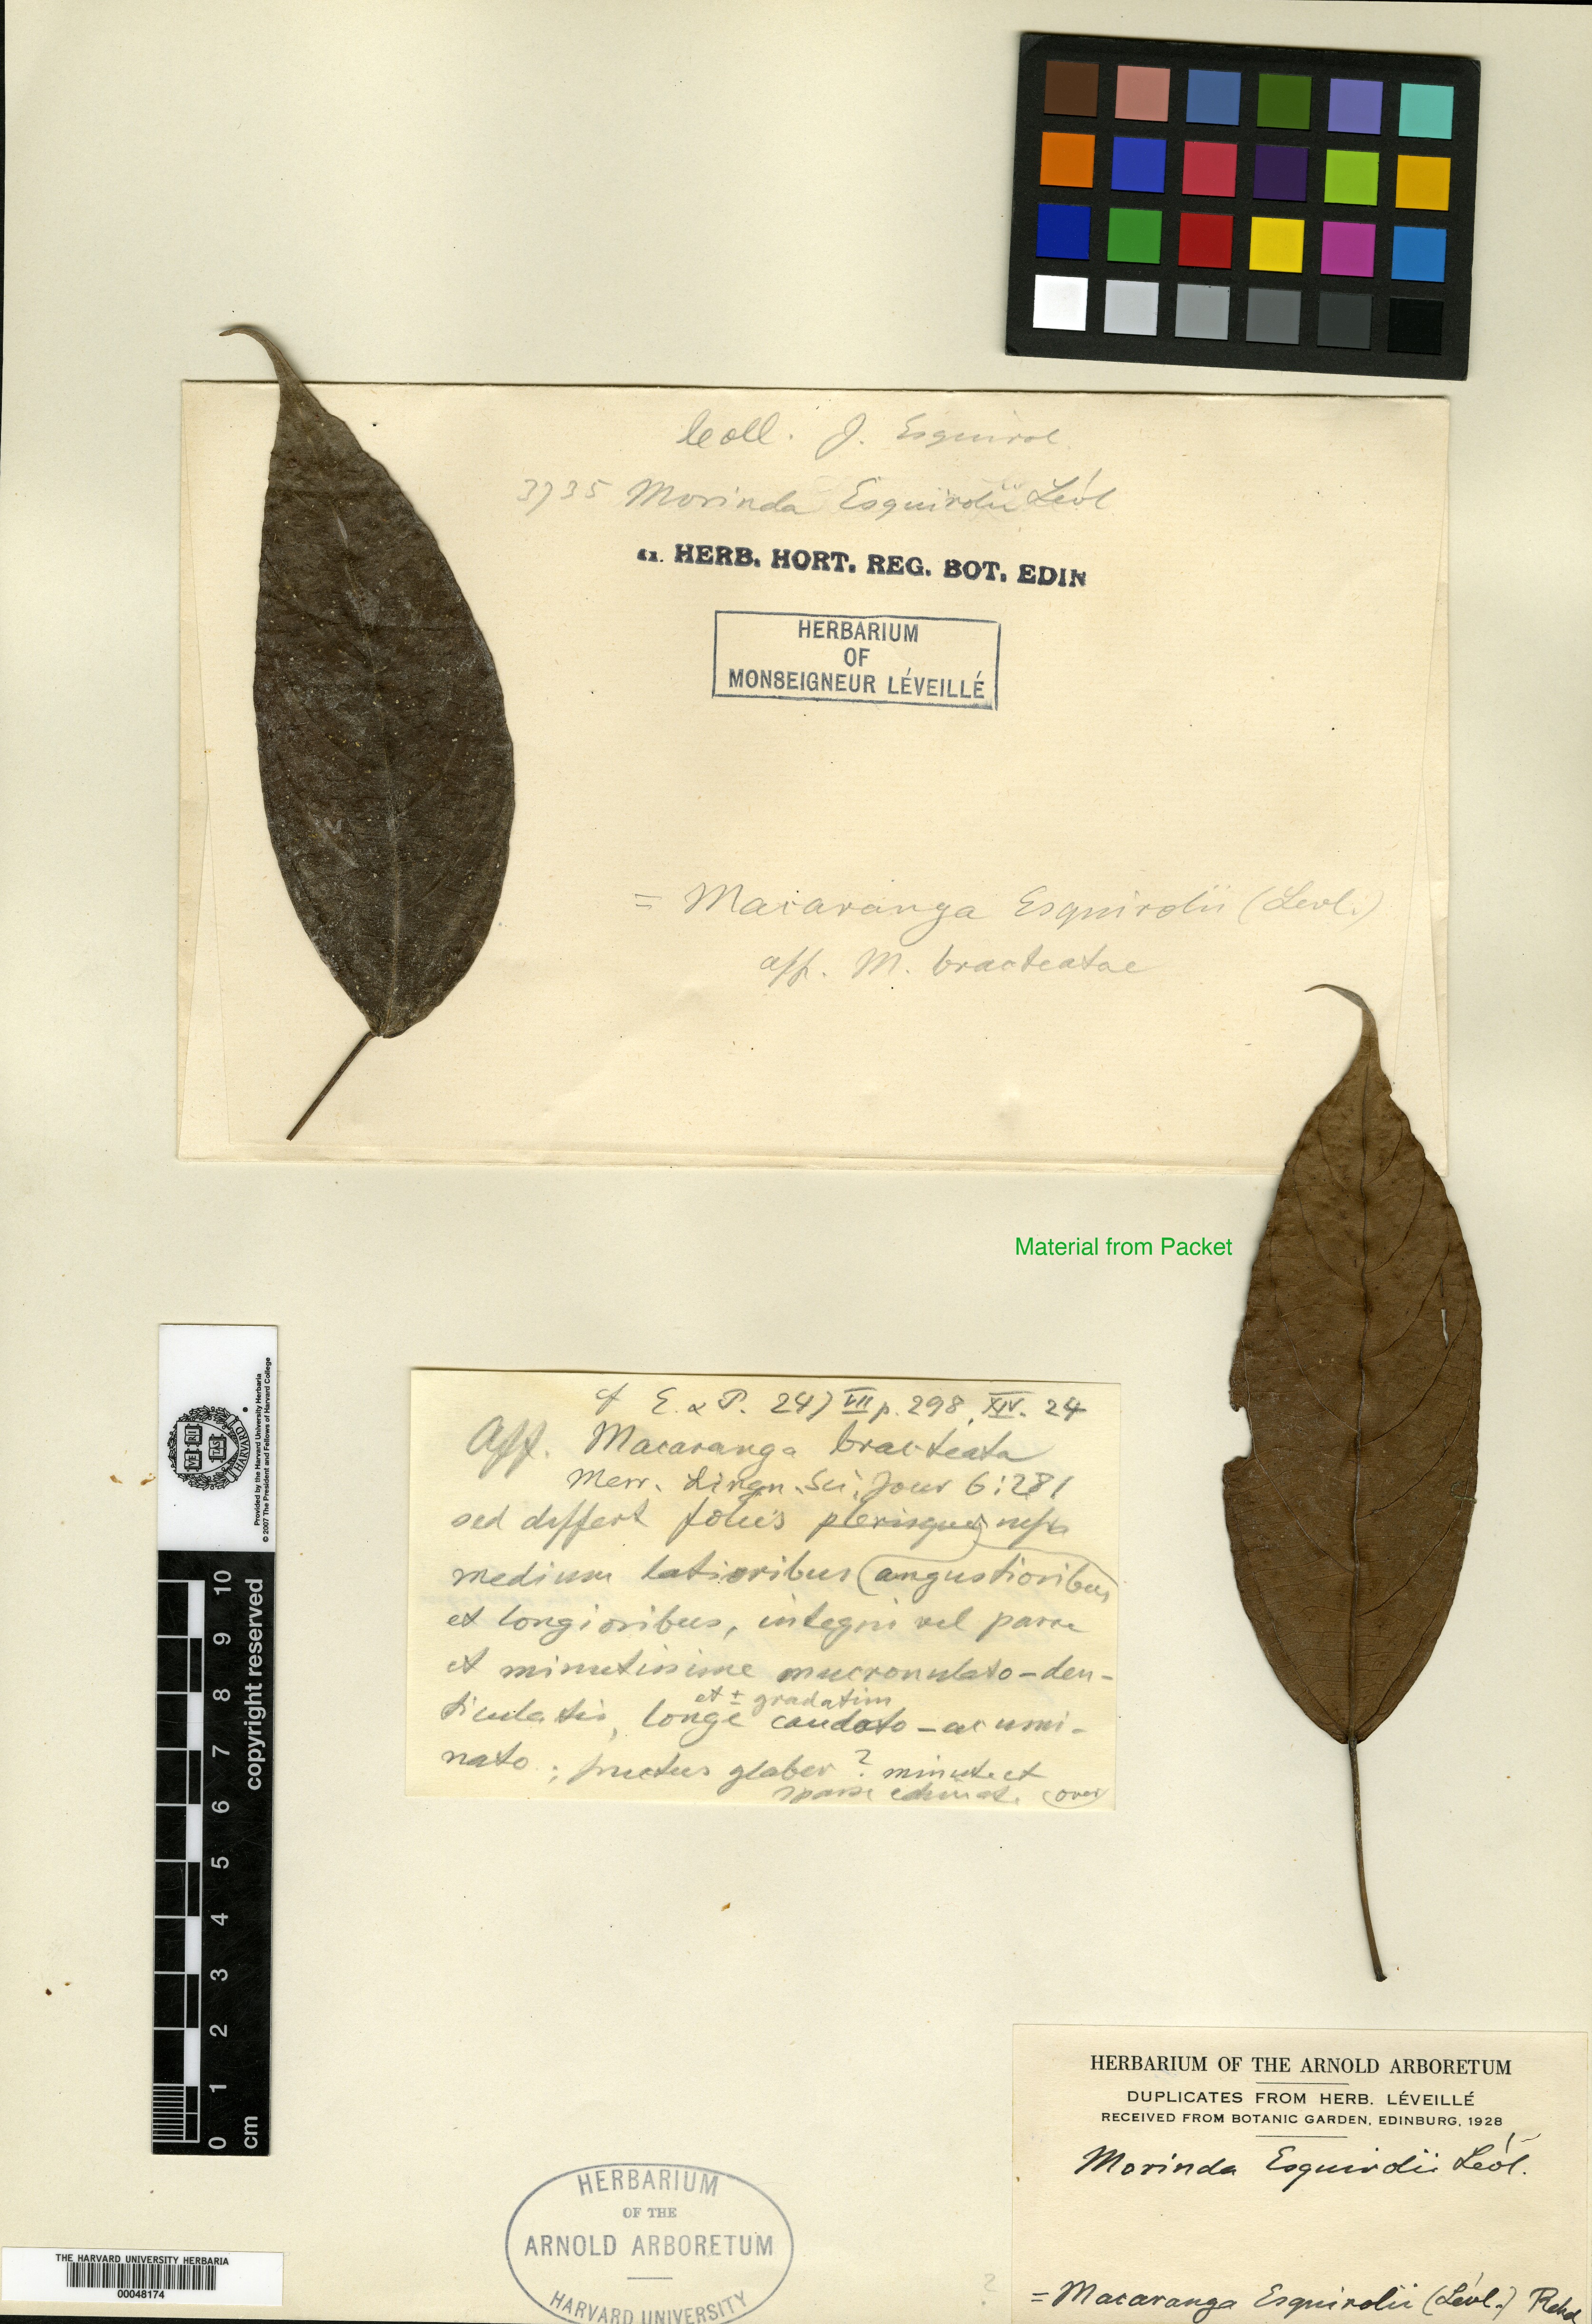 Coll. J. Esquirol
3735 Morinda Esquirolii Lévl
HERB. HORT. REG. BOT. EDIN
HERBARIUM
OF
MONSEIGNEUR LÉVEILLÉ
= Macaranga Esquirolii (Levl.)
aff. M. bracteatae
Material from Packet
cf E. & P. 247 VII p. 298, XIV. 24
Aff. Macaranga bracteata
Merr. Lingn. Sci. Jour 6:281
sed differt foliis plerisque
medium latioribus (angustioribus
et longioribus, integris vel parce
et minutissime mucronulato-den-
ticulatis, longe et ± gradatim caudato-acumi-
nato; fructus glaber? minute et
sparse echinat. (over)
Provided by the Harvard University Herbaria
© 2007 The President and Fellows of Harvard College
VE RI TAS
copyright reserved
10
9
8
7
6
5
4
3
2
1
0
cm
HERBARIUM OF THE ARNOLD ARBORETUM
DUPLICATES FROM HERB. LÉVEILLÉ
RECEIVED FROM BOTANIC GARDEN, EDINBURG, 1928
Morinda Esquirolii Lévl.
= Macaranga Esquirolii (Lévl.) Rehd
?
HERBARIUM
OF THE
ARNOLD ARBORETUM
HARVARD UNIVERSITY
THE HARVARD UNIVERSITY HERBARIA
00048174